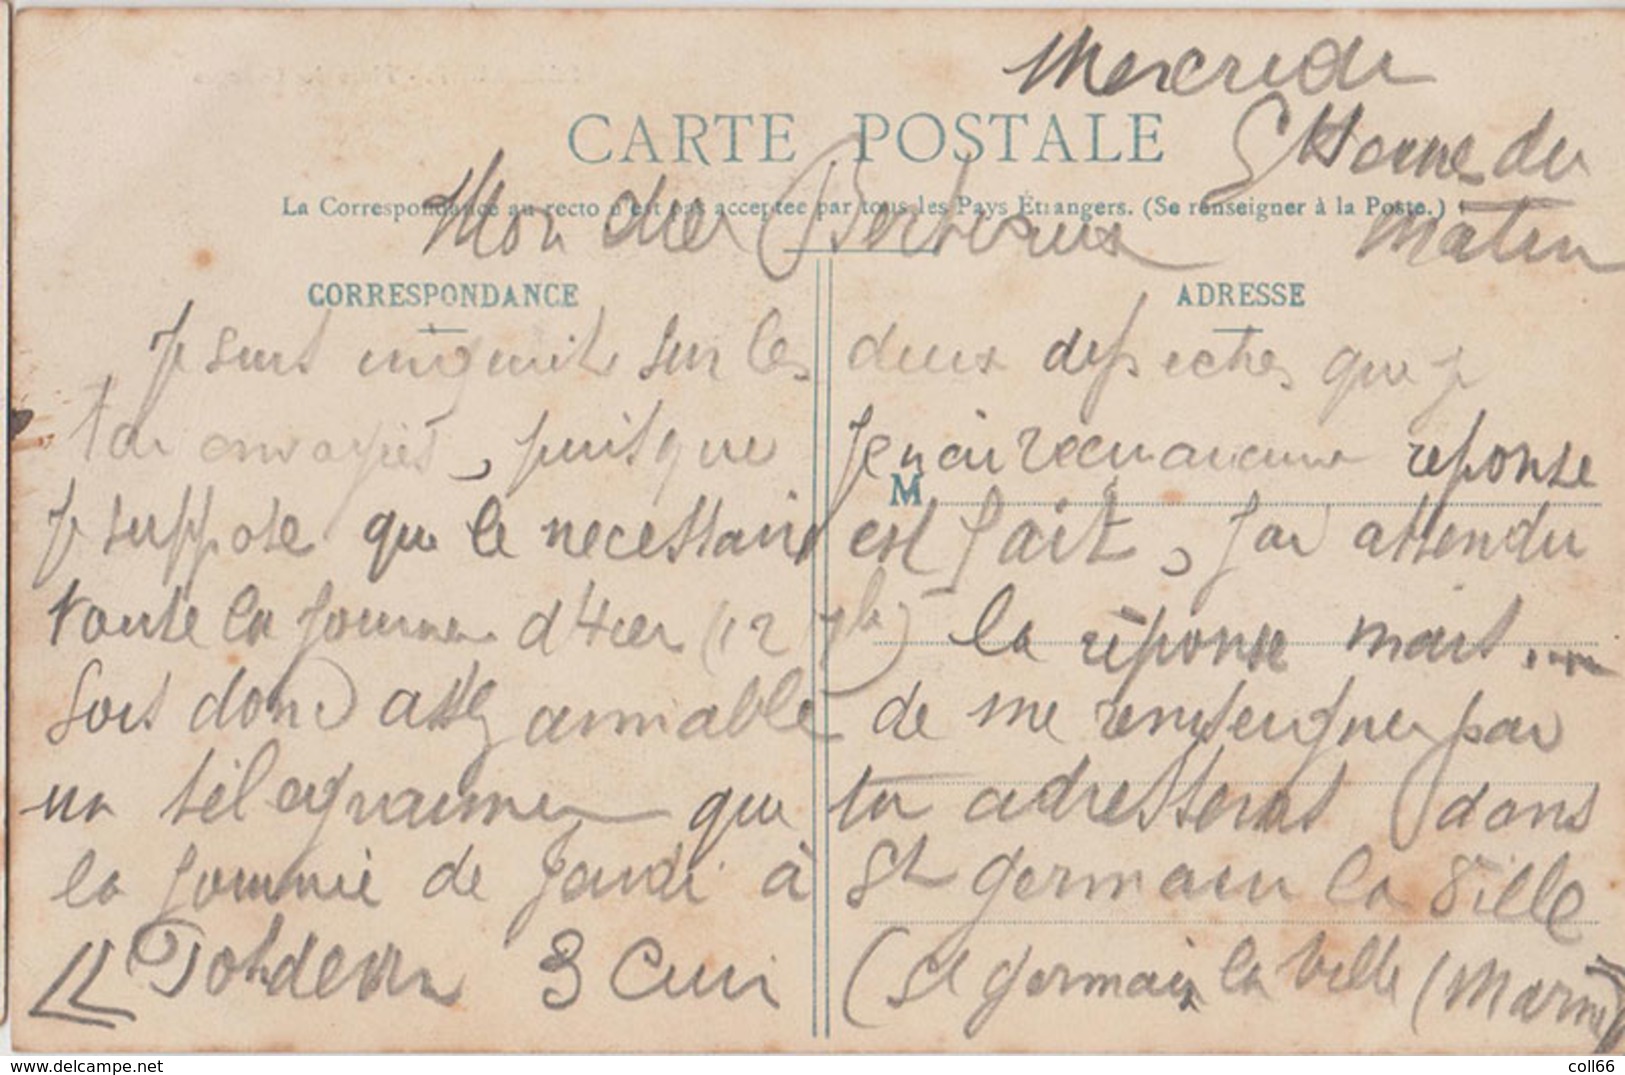 Mercredi
CARTE POSTALE
5 Heures du
matin
La Correspondance au recto n'est pas acceptée par tous les Pays Étrangers. (Se renseigner à la Poste.)
Mon cher Berteaux
CORRESPONDANCE
ADRESSE
Je suis inquiet sur les deux depeches que je
t'ai envoyés, puisque je n'ai recu aucune reponse
M
Je suppose que le necessaire est fait, j'ai attendu
toute la journee d'Hier (12 7bre) la réponse mais....
Sois donc assez aimable de me renseigner par
un télegramme que tu adresseras dans
la journée de Jeudi à St germain la Ville
3 Cuir (St germain la Ville (Marne)
coll66